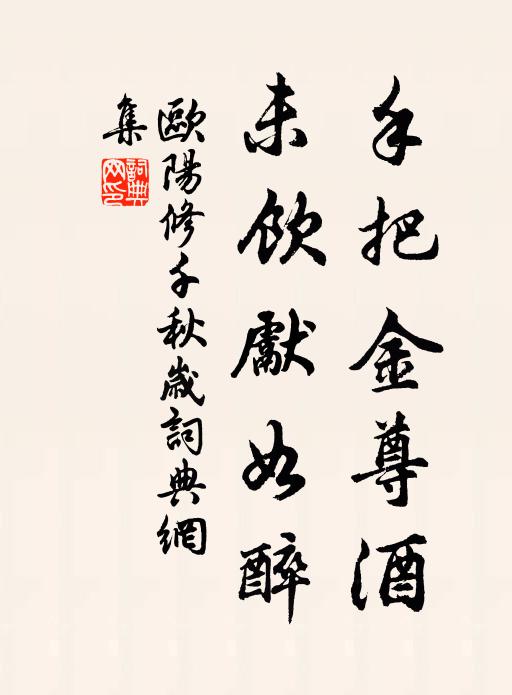 手把金尊酒
未飲獻如醉
歐陽修千秋歲詞典網
集
詞典
网印